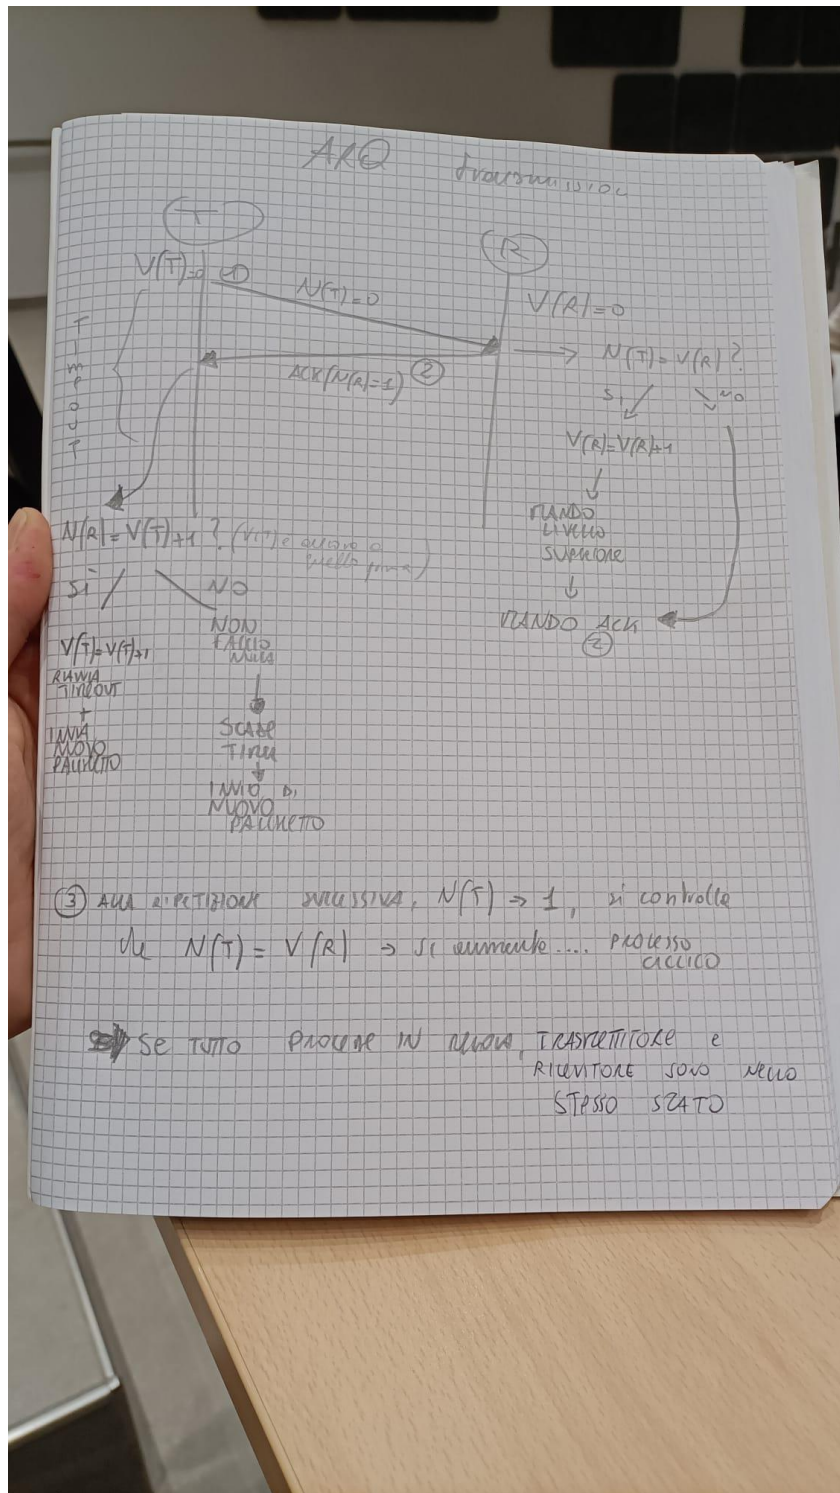 ARQ transmission
T
R
V(T)=0 ①
N(T)=0
V(R)=0
TIMEOUT
N(T)=V(R)?
ACK(N(R)=1) ②
Sì
NO
V(R)=V(R)+1
MANDO
LIVELLO
SUPERIORE
MANDO ACK
②
N(R)=V(T)+1? (V(T) è ancora a
quello prima)
Sì
NO
V(T)=V(T)+1
TIMEOUT
+
INVIA
NUOVO
PACCHETTO
NON
FACCIO
NULLA
SCADE
TIMER
INVIO DI
NUOVO
PACCHETTO
③ ALLA RIPETIZIONE SUCCESSIVA, N(T) → 1, si controlla
che N(T) = V(R) → si aumenta.... PROCESSO
CICLICO
SE TUTTO PROCEDE IN TRASMETTITORE e
RICEVITORE SONO NELLO
STESSO STATO